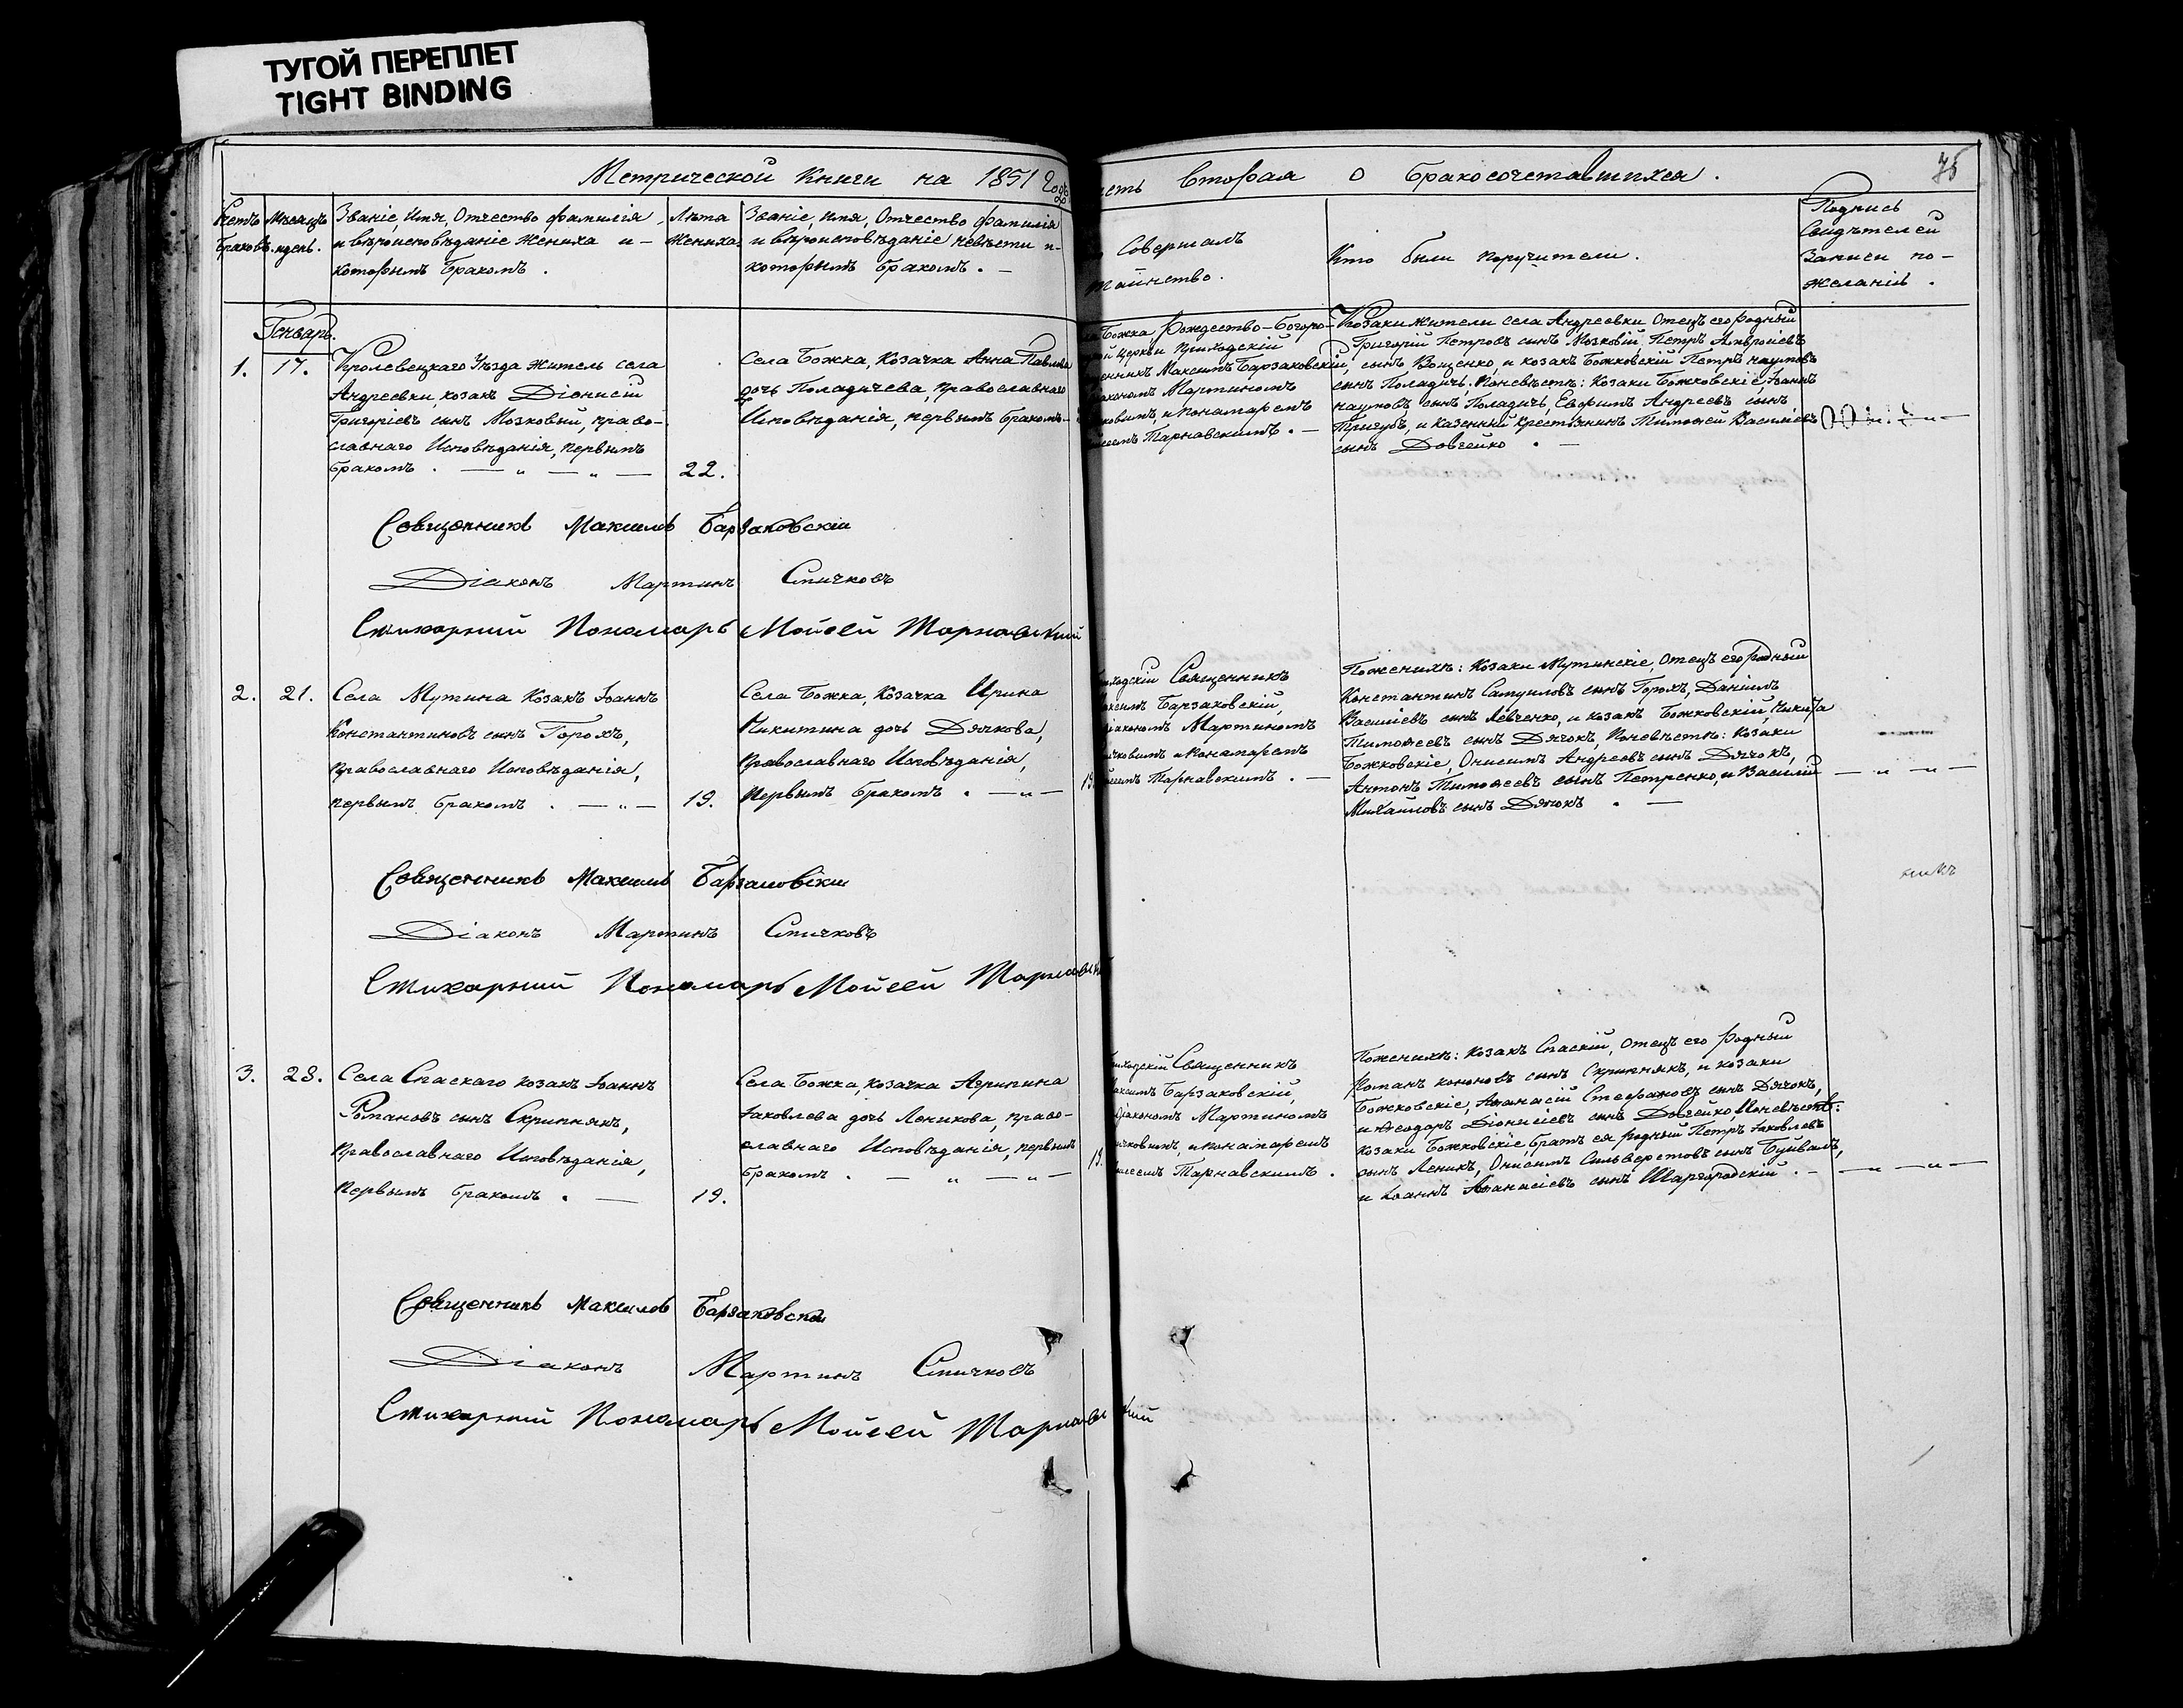 ТУГОЙ ПЕРЕПЛЕТ
TIGHT BINDING
Метрической Книги на 1851 Годъ
Счетъ Браковъ.
Мѣсяцъ и день.
Званіе, Имя, Отчество фамилія
и вѣроисповѣданіе Жениха и –
которымъ Бракомъ.
Лѣта
Жениха.
Званіе, имя, Отчество фамилія
и вѣроисповѣданіе невѣсты и –
которымъ бракомъ. –
Генварь.
1. 17.
Кролевецкаго Уѣзда житель села
Андреевки, козакъ Діонисій
Григоріевъ сынъ Мозковій, право-
славнаго Исповѣданія, первымъ
бракомъ. — „ — „ —
22.
Села Божка, Козачка Анна Павлова
дочь Поладичева, православнаго
Исповѣданія, первымъ бракомъ –
Священникъ Максимъ Барзаковскій
Діаконъ Мартинъ Спичковъ
Стихарний Пономарь Мойсей Тарнавский
2. 21.
Села Мутина Козакъ Іоаннъ
Константиновъ сынъ Горохъ,
православнаго Исповѣданія,
первымъ бракомъ. — „ —
19.
Села Божка, Козачка Ирина
Никитина дочь Дячкова,
православнаго Исповѣданія,
первымъ бракомъ. — „ —
19.
Священникъ Максимъ Барзаковскій
Діаконъ Мартинъ Спичковъ
Стихарний Пономарь Мойсей
3. 28.
Села Спаскаго козакъ Іоаннъ
Романовъ сынъ Скрипнякъ,
православнаго Исповѣданія,
первымъ бракомъ. —
19.
Села Божка, козачка Агрипина
Іаковлева дочь Леникова, право-
славнаго Исповѣданія, первымъ
бракомъ. — „ — „ —
19.
Священникъ Максимъ Барзаковскій
Діаконъ Мартинъ Спичковъ
Стихарний Пономарь Мойсей Тарнавский
Вторая о Бракосочетавшихся.
75
Совершалъ
Таинство.
Кто были поручители.
Подпись
Свидѣтелей
Записи по –
желанію.
Божка Рождество-Богоро-
церкви Приходскій
Максимъ Барзаковскій,
Мартиномъ
и пономаремъ
Тарнавскимъ. –
Козаки жители села Андреевки Отецъ его родный
Григорій Петровъ сынъ Мозковій, Петръ Амвросіевъ
сынъ Вощенко, и козакъ Божковскій Петръ Наумовъ
сынъ Поладичъ. Поневѣстѣ: Козаки Божковскіе, Іоаннъ
Наумовъ сынъ Поладичъ, Евфимъ Андреевъ сынъ
Тригубъ, и казенный крестьянинъ Тимофей Василіевъ
сынъ Довгейко. —
Священникъ
Максимъ Барзаковскій,
Мартиномъ
и пономаремъ
Тарнавскимъ. —
Поженихѣ: Козаки Мутинскіе, Отецъ его родный
Константинъ Самуиловъ сынъ Горохъ, Даніилъ
Василіевъ сынъ Левченко, и козакъ Божковскій, Никита
Тимофеевъ сынъ Дячокъ, Поневѣстѣ: Козаки
Божковскіе, Онисимъ Андреевъ сынъ Дячокъ,
Антонъ Тимофеевъ сынъ Петренко, и Василій
Михайловъ сынъ Дячокъ. —
— „ — „ —
Священникъ
Барзаковскій,
Мартиномъ
и пономаремъ
Тарнавскимъ.
Поженихѣ: Козакъ Спаскій, Отецъ его родный
Романъ Кононовъ сынъ Скрипнякъ, и козаки
Божковскіе, Аѳанасій Стефановъ сынъ Дячокъ,
и Ѳеодоръ Діонисіевъ сынъ Довгейко, Поневѣстѣ:
козаки Божковскіе, братъ ея родный Петръ Іаковлевъ
сынъ Леникъ, Онисимъ Сильверстовъ сынъ Буйвалъ,
и Іоаннъ Аѳанасіевъ сынъ Шаргородскій. —
— „ — „ —